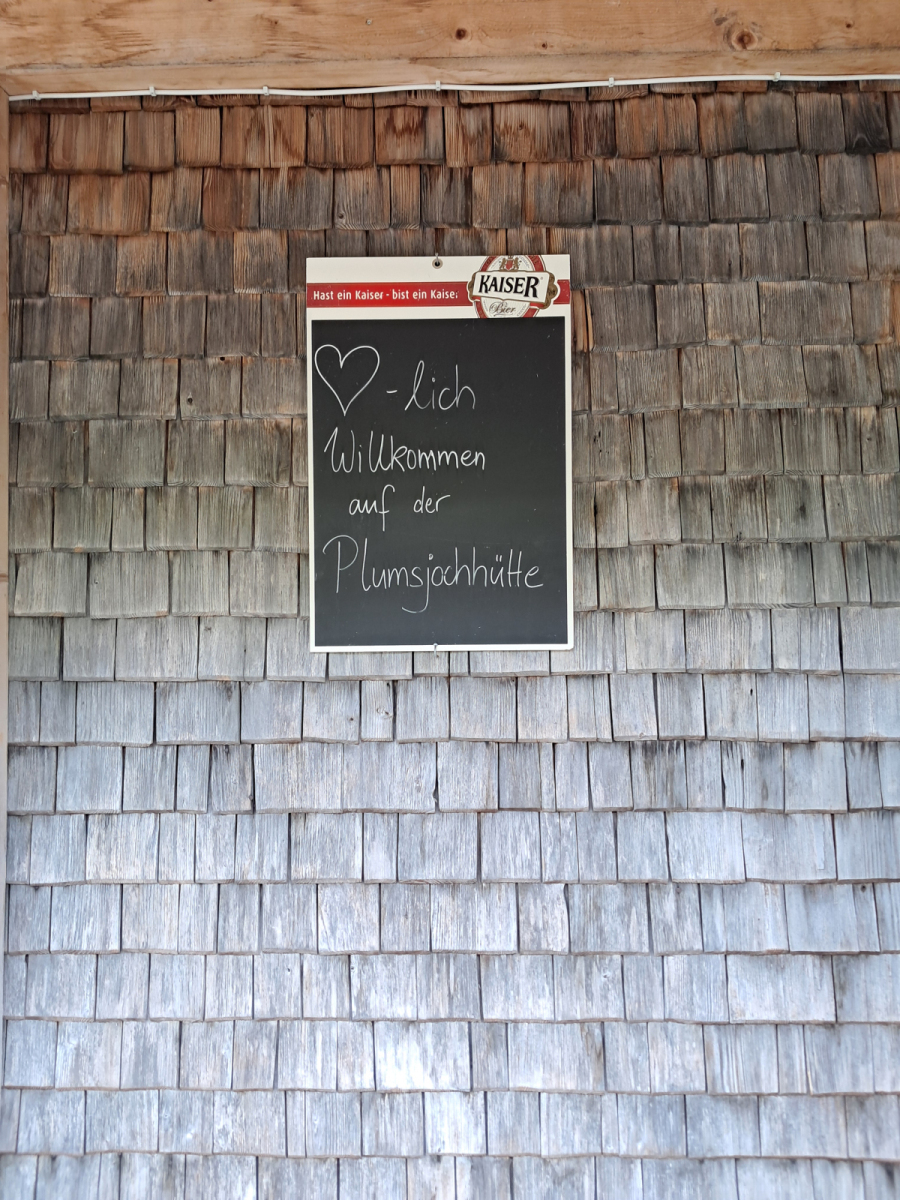 Hast ein Kaiser - bist ein Kaiser
KAISER
Bier
♡-lich
Willkommen
auf der
Plumsjochhütte